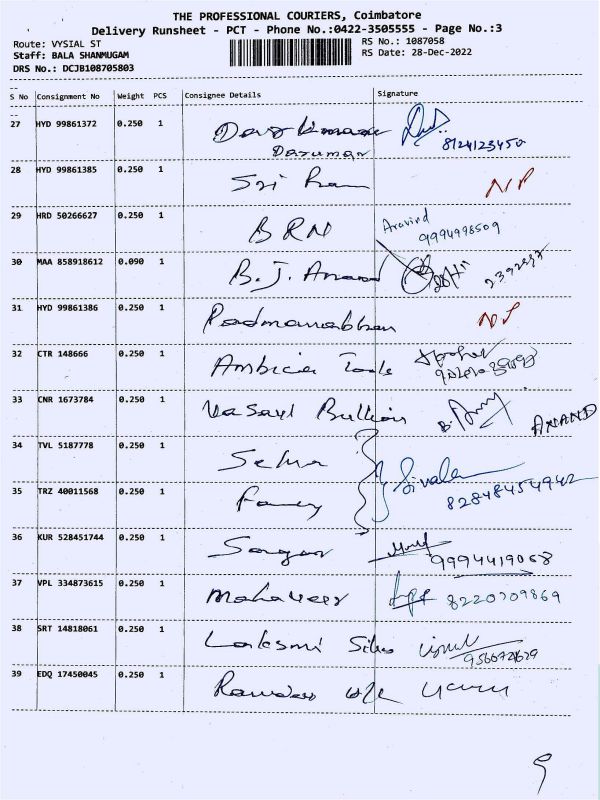 THE PROFESSIONAL COURIERS, Coimbatore
Delivery Runsheet - PCT - Phone No.:0422-3505555 - Page No.:3
Route: VYSIAL ST RS No.: 1087058
Staff: BALA SHANMUGAM RS Date: 28-Dec-2022
DRS No.: DCJB108705803
S No Consignment No Weight PCS Consignee Details Signature
27 HYD 99861372 0.250 1 8124123450
28 HYD 99861385 0.250 1 Sri Ram NP
29 HRD 50266627 0.250 1 BRN Aravind
9994998509
30 MAA 858918612 0.090 1 B.J. Anand
31 HYD 99861386 0.250 1 Padmanabhan NP
32 CTR 148666 0.250 1 Ambica Tools
33 CNR 1673784 0.250 1 Bullion B. ANAND
34 TVL 5187778 0.250 1 Selva
35 TRZ 40011568 0.250 1 Fancy
36 KUR 528451744 0.250 1 Sangar 9994419068
37 VPL 334873615 0.250 1 Mahaveer 8220709869
38 SRT 14818061 0.250 1 Laksmi
39 EDQ 17450045 0.250 1
9